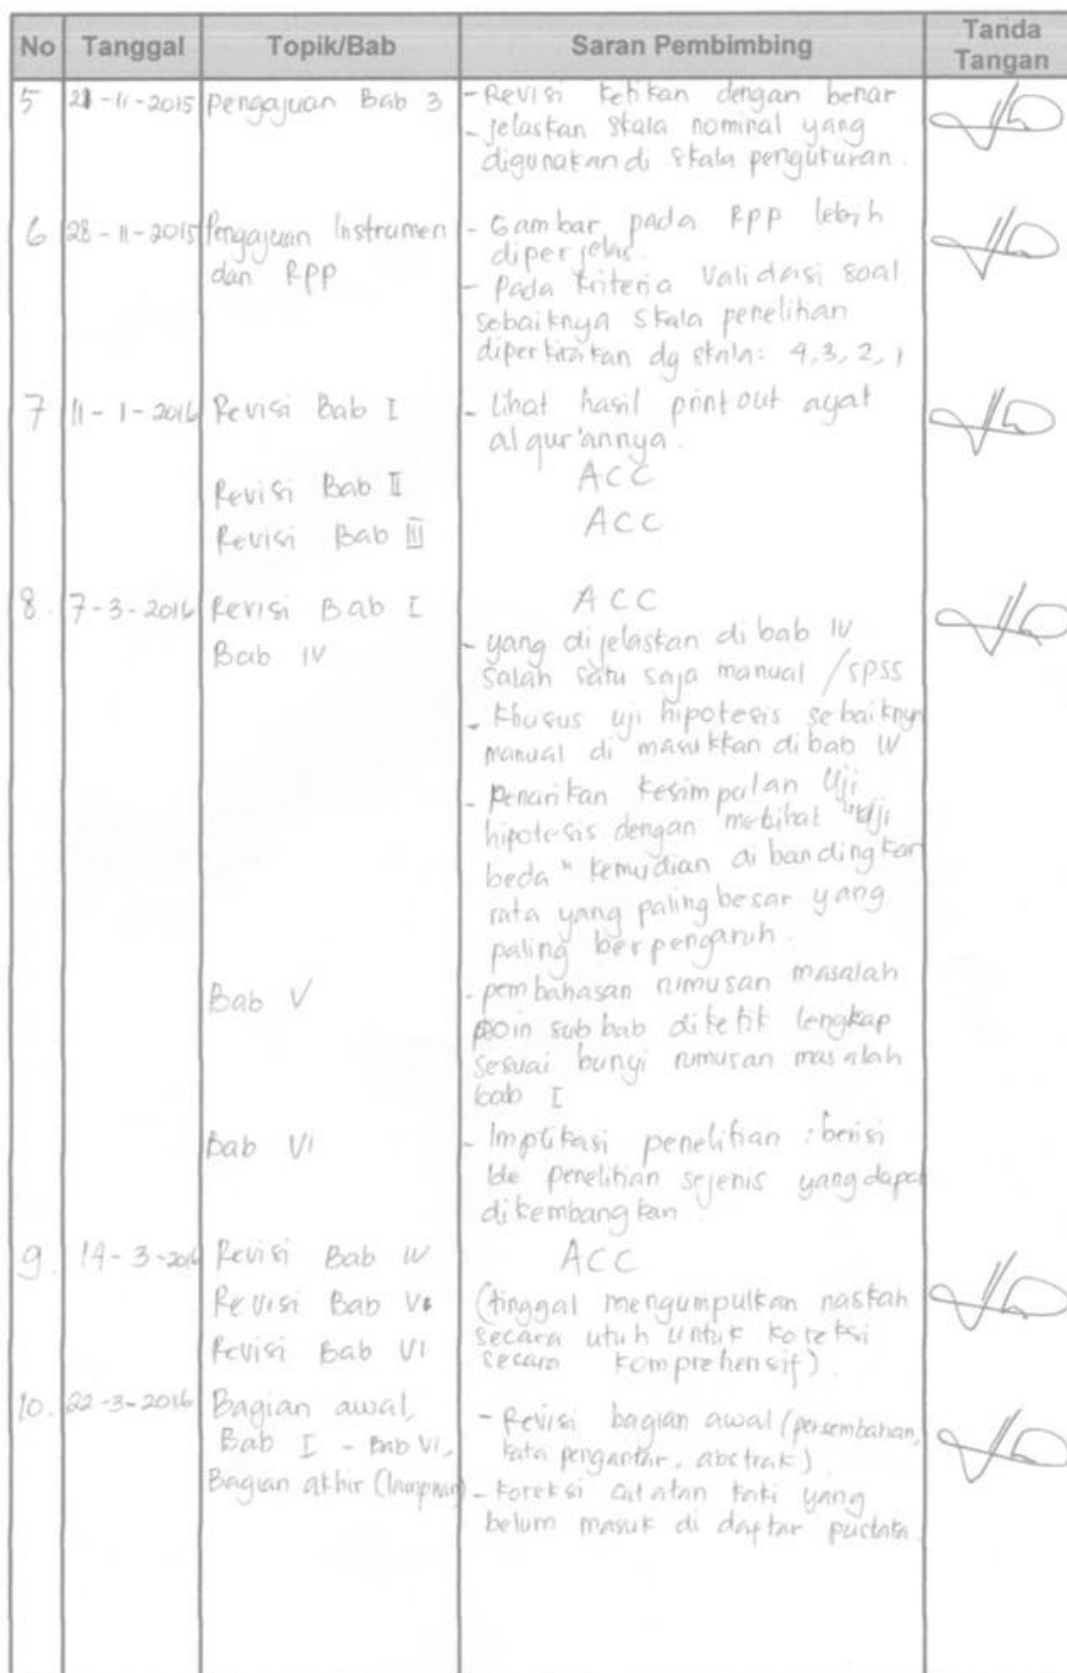 No Tanggal Topik/Bab Saran Pembimbing Tanda Tangan
5 21-11-2015 Pengajuan Bab 3 - Revisi ketikan dengan benar
- jelaskan skala nominal yang
digunakan di skala pengukuran.
6 28-11-2015 Pengajuan Instrumen - Gambar pada RPP lebih
dan RPP diperjelas.
- Pada kriteria validasi soal
sebaiknya skala penelitian
diperkirakan dg skala: 4,3,2,1
7 11-1-2016 Revisi Bab I - Lihat hasil print out ayat
al qur'annya.
Revisi Bab II ACC
Revisi Bab III ACC
8. 7-3-2016 Revisi Bab I ACC
Bab IV - yang dijelaskan di bab IV
salah satu saja manual / SPSS
- Khusus uji hipotesis sebaiknya
manual di masukkan di bab IV
- Penarikan kesimpulan Uji
hipotesis dengan melihat "Uji
beda" kemudian di bandingkan
rata yang paling besar yang
paling berpengaruh.
Bab V - pembahasan rumusan masalah
poin sub bab diketik lengkap
sesuai bunyi rumusan masalah
bab I
Bab VI - Implikasi penelitian : berisi
ide penelitian sejenis yang dapat
dikembangkan.
9. 14-3-2016 Revisi Bab IV ACC
Revisi Bab V (tinggal mengumpulkan naskah
Revisi Bab VI secara utuh untuk koreksi
secara komprehensif).
10. 22-3-2016 Bagian awal, - Revisi bagian awal (persembahan,
Bab I - Bab VI, kata pengantar, abstrak)
Bagian akhir (lampiran) - Koreksi catatan kaki yang
belum masuk di daftar pustaka.